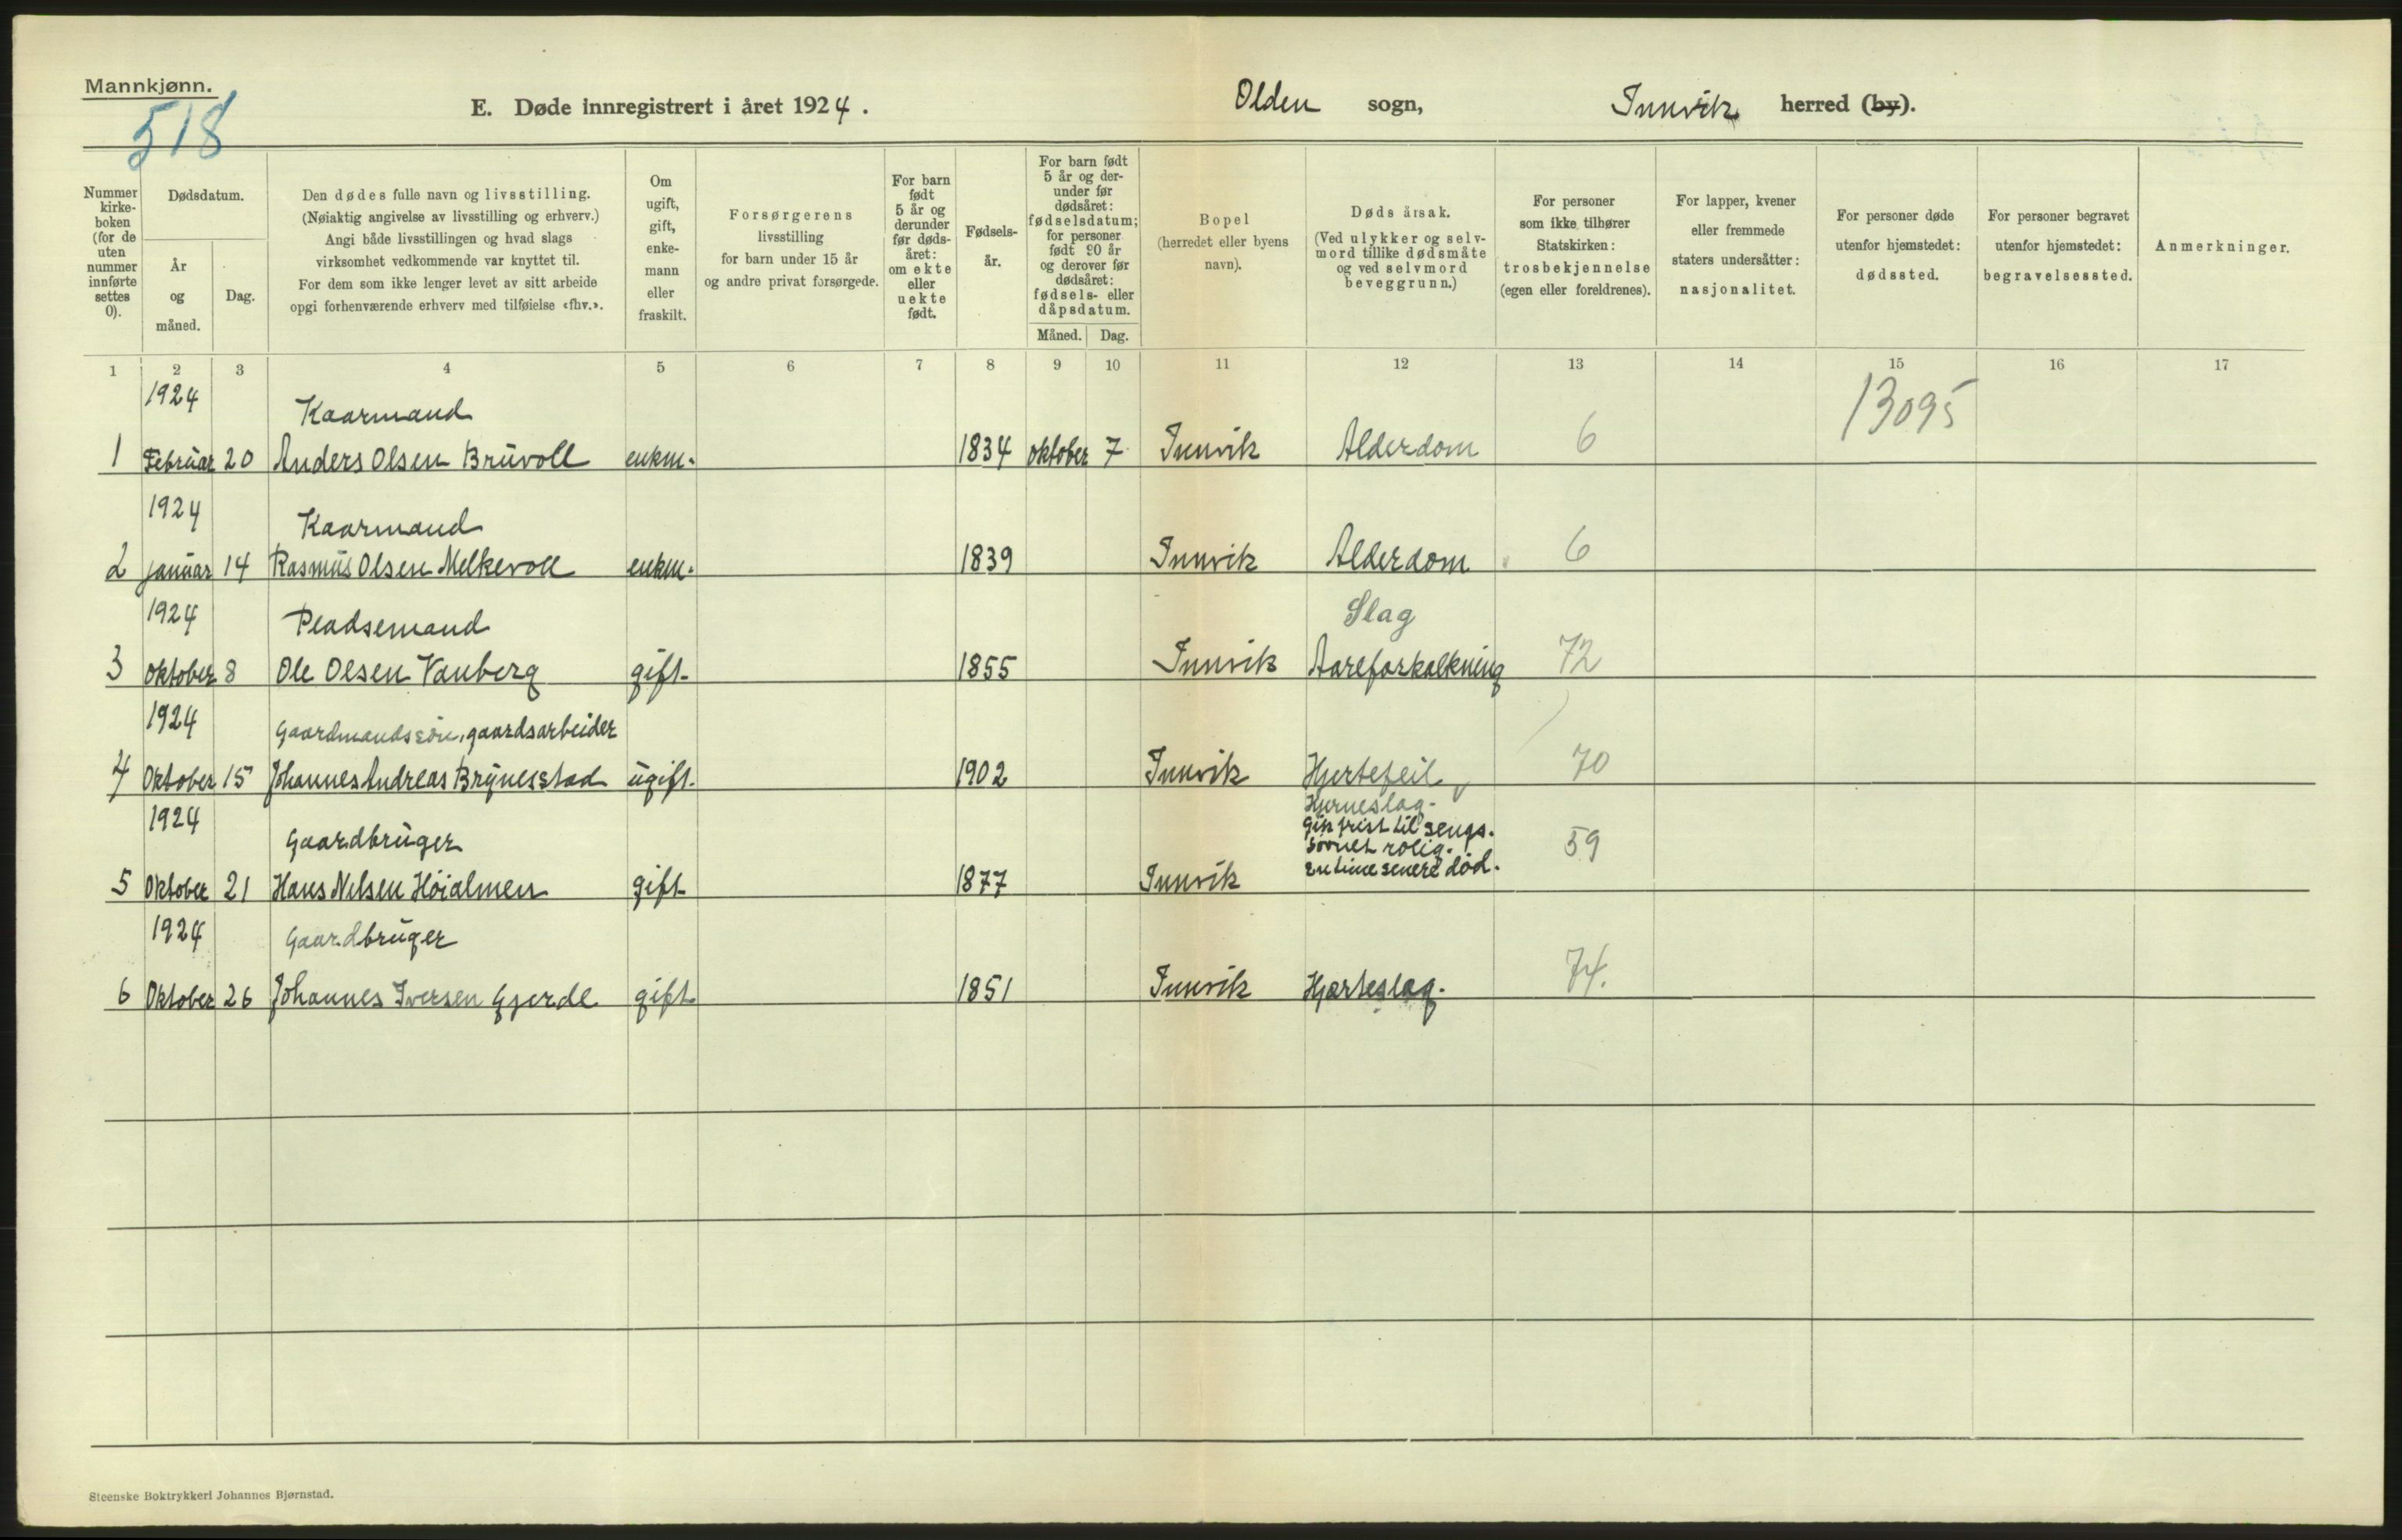 Mannkjønn.
518
E. Døde innregistrert i året 1924.
Olden sogn, Innvik herred (by).
Nummer kirke-boken (for de uten nummer innførte settes 0).
Dødsdatum.
År og måned.
Dag.
Den dødes fulle navn og livsstilling.
(Nøiaktig angivelse av livsstilling og erhverv.)
Angi både livsstillingen og hvad slags
virksomhet vedkommende var knyttet til.
For dem som ikke lenger levet av sitt arbeide
opgi forhenværende erhverv med tilføielse «fhv.».
Om ugift, gift, enke-mann eller fraskilt.
Forsørgerens
livsstilling
for barn under 15 år
og andre privat forsørgede.
For barn født 5 år og derunder før døds-året: om ekte eller uekte født.
Fødsels-år.
For barn født 5 år og der-under før dødsåret: fødselsdatum; for personer født 90 år og derover før dødsåret: fødsels- eller dåpsdatum.
Måned. Dag.
Bopel
(herredet eller byens
navn).
Dødsårsak.
(Ved ulykker og selv-
mord tillike dødsmåte
og ved selvmord
beveggrunn.)
For personer
som ikke tilhører
Statskirken:
trosbekjennelse
(egen eller foreldrenes).
For lapper, kvener
eller fremmede
staters undersåtter:
nasjonalitet.
For personer døde
utenfor hjemstedet:
dødssted.
For personer begravet
utenfor hjemstedet:
begravelsessted.
Anmerkninger.
1 2 3 4 5 6 7 8 9 10 11 12 13 14 15 16 17
13095
1924 Kaarmand
1 Februar 20 Anders Olsen Bruvoll enkm. 1834 oktober 7 Innvik Alderdom 6
1924 Kaarmand
2 januar 14 Rasmus Olsen Melkevoll enkm. 1839 Innvik Alderdom 6
1924 Pladsemand Slag
3 oktober 8 Ole Olsen Vanberg gift 1855 Innvik Aareforkalkning 72
1924 Gaardmandssøn, gaardsarbeider
4 Oktober 15 Johannes Andreas Brynestad ugift. 1902 Innvik Hjertefeil 70
1924 Gaardbruger Hjerneslag.
Gik frisk til sengs.
Sovnet rolig. 59
En time senere død.
5 Oktober 21 Hans Nilsen Høialmen gift 1877 Innvik
1924 Gaardbruger
6 Oktober 26 Johannes Iversen Gjerde gift 1851 Innvik Hjerteslag. 74.
Steenske Boktrykkeri Johannes Bjørnstad.